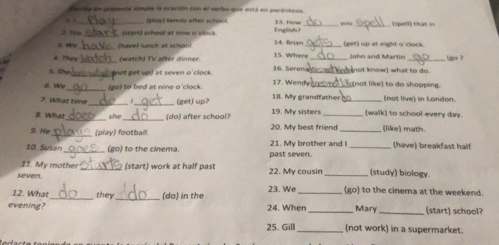 Escribe en presente simple la oración con el verbo que está en paréntesis.
1. I Play (play) tennis after school.
2. You start (start) school at nine o'clock.
3. We have (have) lunch at school.
4. They watch (watch) TV after dinner.
5. She (not get up) at seven o'clock.
6. We go (go) to bed at nine o'clock.
7. What time do I get (get) up?
8. What does she do (do) after school?
9. He plays (play) football.
10. Susan goes (go) to the cinema.
11. My mother starts (start) work at half past
seven.
12. What do they do (do) in the
evening?
13. How do you spell (spell) that in
English?
14. Brian gets (get) up at eight o'clock.
15. Where do John and Martin go (go ?
16. Serena (not know) what to do.
17. Wendy (not like) to do shopping.
18. My grandfather (not live) in London.
19. My sisters (walk) to school every day.
20. My best friend (like) math.
21. My brother and I (have) breakfast half
past seven.
22. My cousin (study) biology.
23. We (go) to the cinema at the weekend.
24. When Mary (start) school?
25. Gill (not work) in a supermarket.